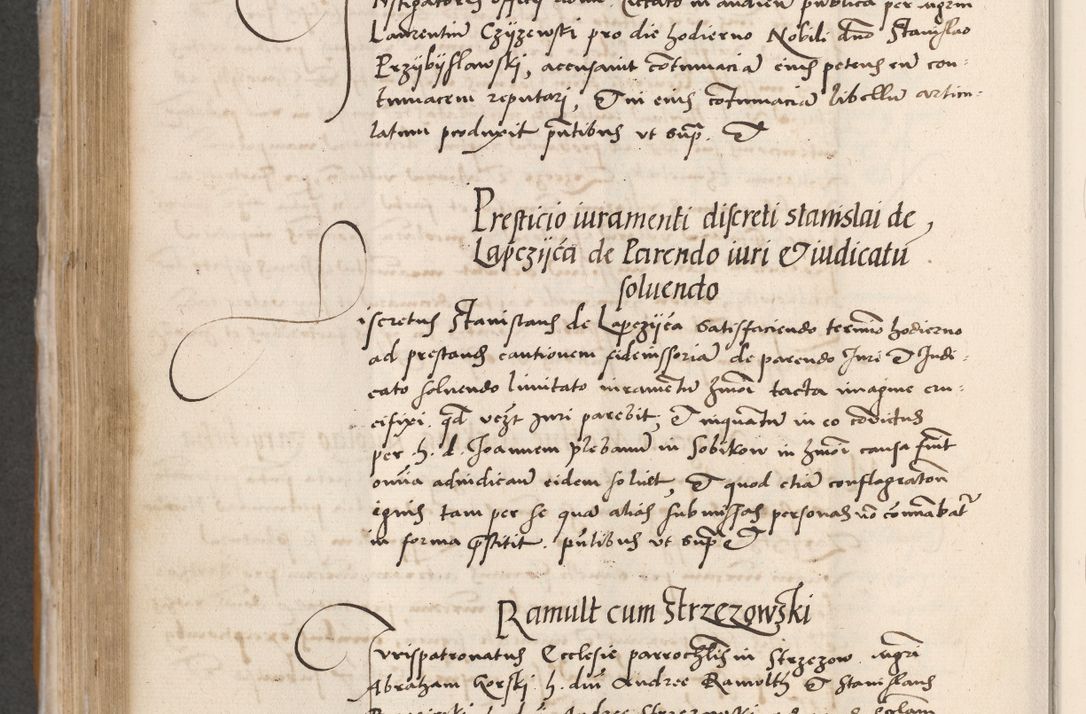 Laurentiu͂ Czyzewski pro die hodierno Nobili dn͂o Stanislao
Przÿbÿslawskj, accusavit co͂tumacia͂ eius petens eu͂ con-
tumacem reputarj, & in eius co͂tumacia͂ libellu͂ articu-
latum produxit pn͂tibus vt sup͂. &
Presticio iuramenti discreti stanislai de
Lapczijća de Parendo iuri & iudicatu͂
soluendo
iscretus Stanislaus de Lapczijća satisfaciendo termi͂o hodierno
ad prestand͂ cautionem fideiussoria͂ de parendo Juri & Judi-
cato soluendo limitato iuramentu͂ h͂mo͂i tacta imagine cru-
cifixi. qd͂ vez͂t Juri parebit, & inquantu͂ in eo co͂victus
per h. d. Joannem plebanu͂ in Sobikow in h͂mo͂i causa fu͂it
om͂ia adiudicau͂ eidem soluet, & quod etia͂ conflagrato͂n
ignis tam per se qua͂ alias submissas personas no͂ com͂inabat͂
in forma p͂stitit. pn͂tibus vt sup͂ &
Ramult cum Strzezowski
Jurispatronatus Ecclesie parroch͂lis in Strzezow. mgr͂i
Abraham Gorskj h. dn͂i Andree Ramolth & Stanislaus